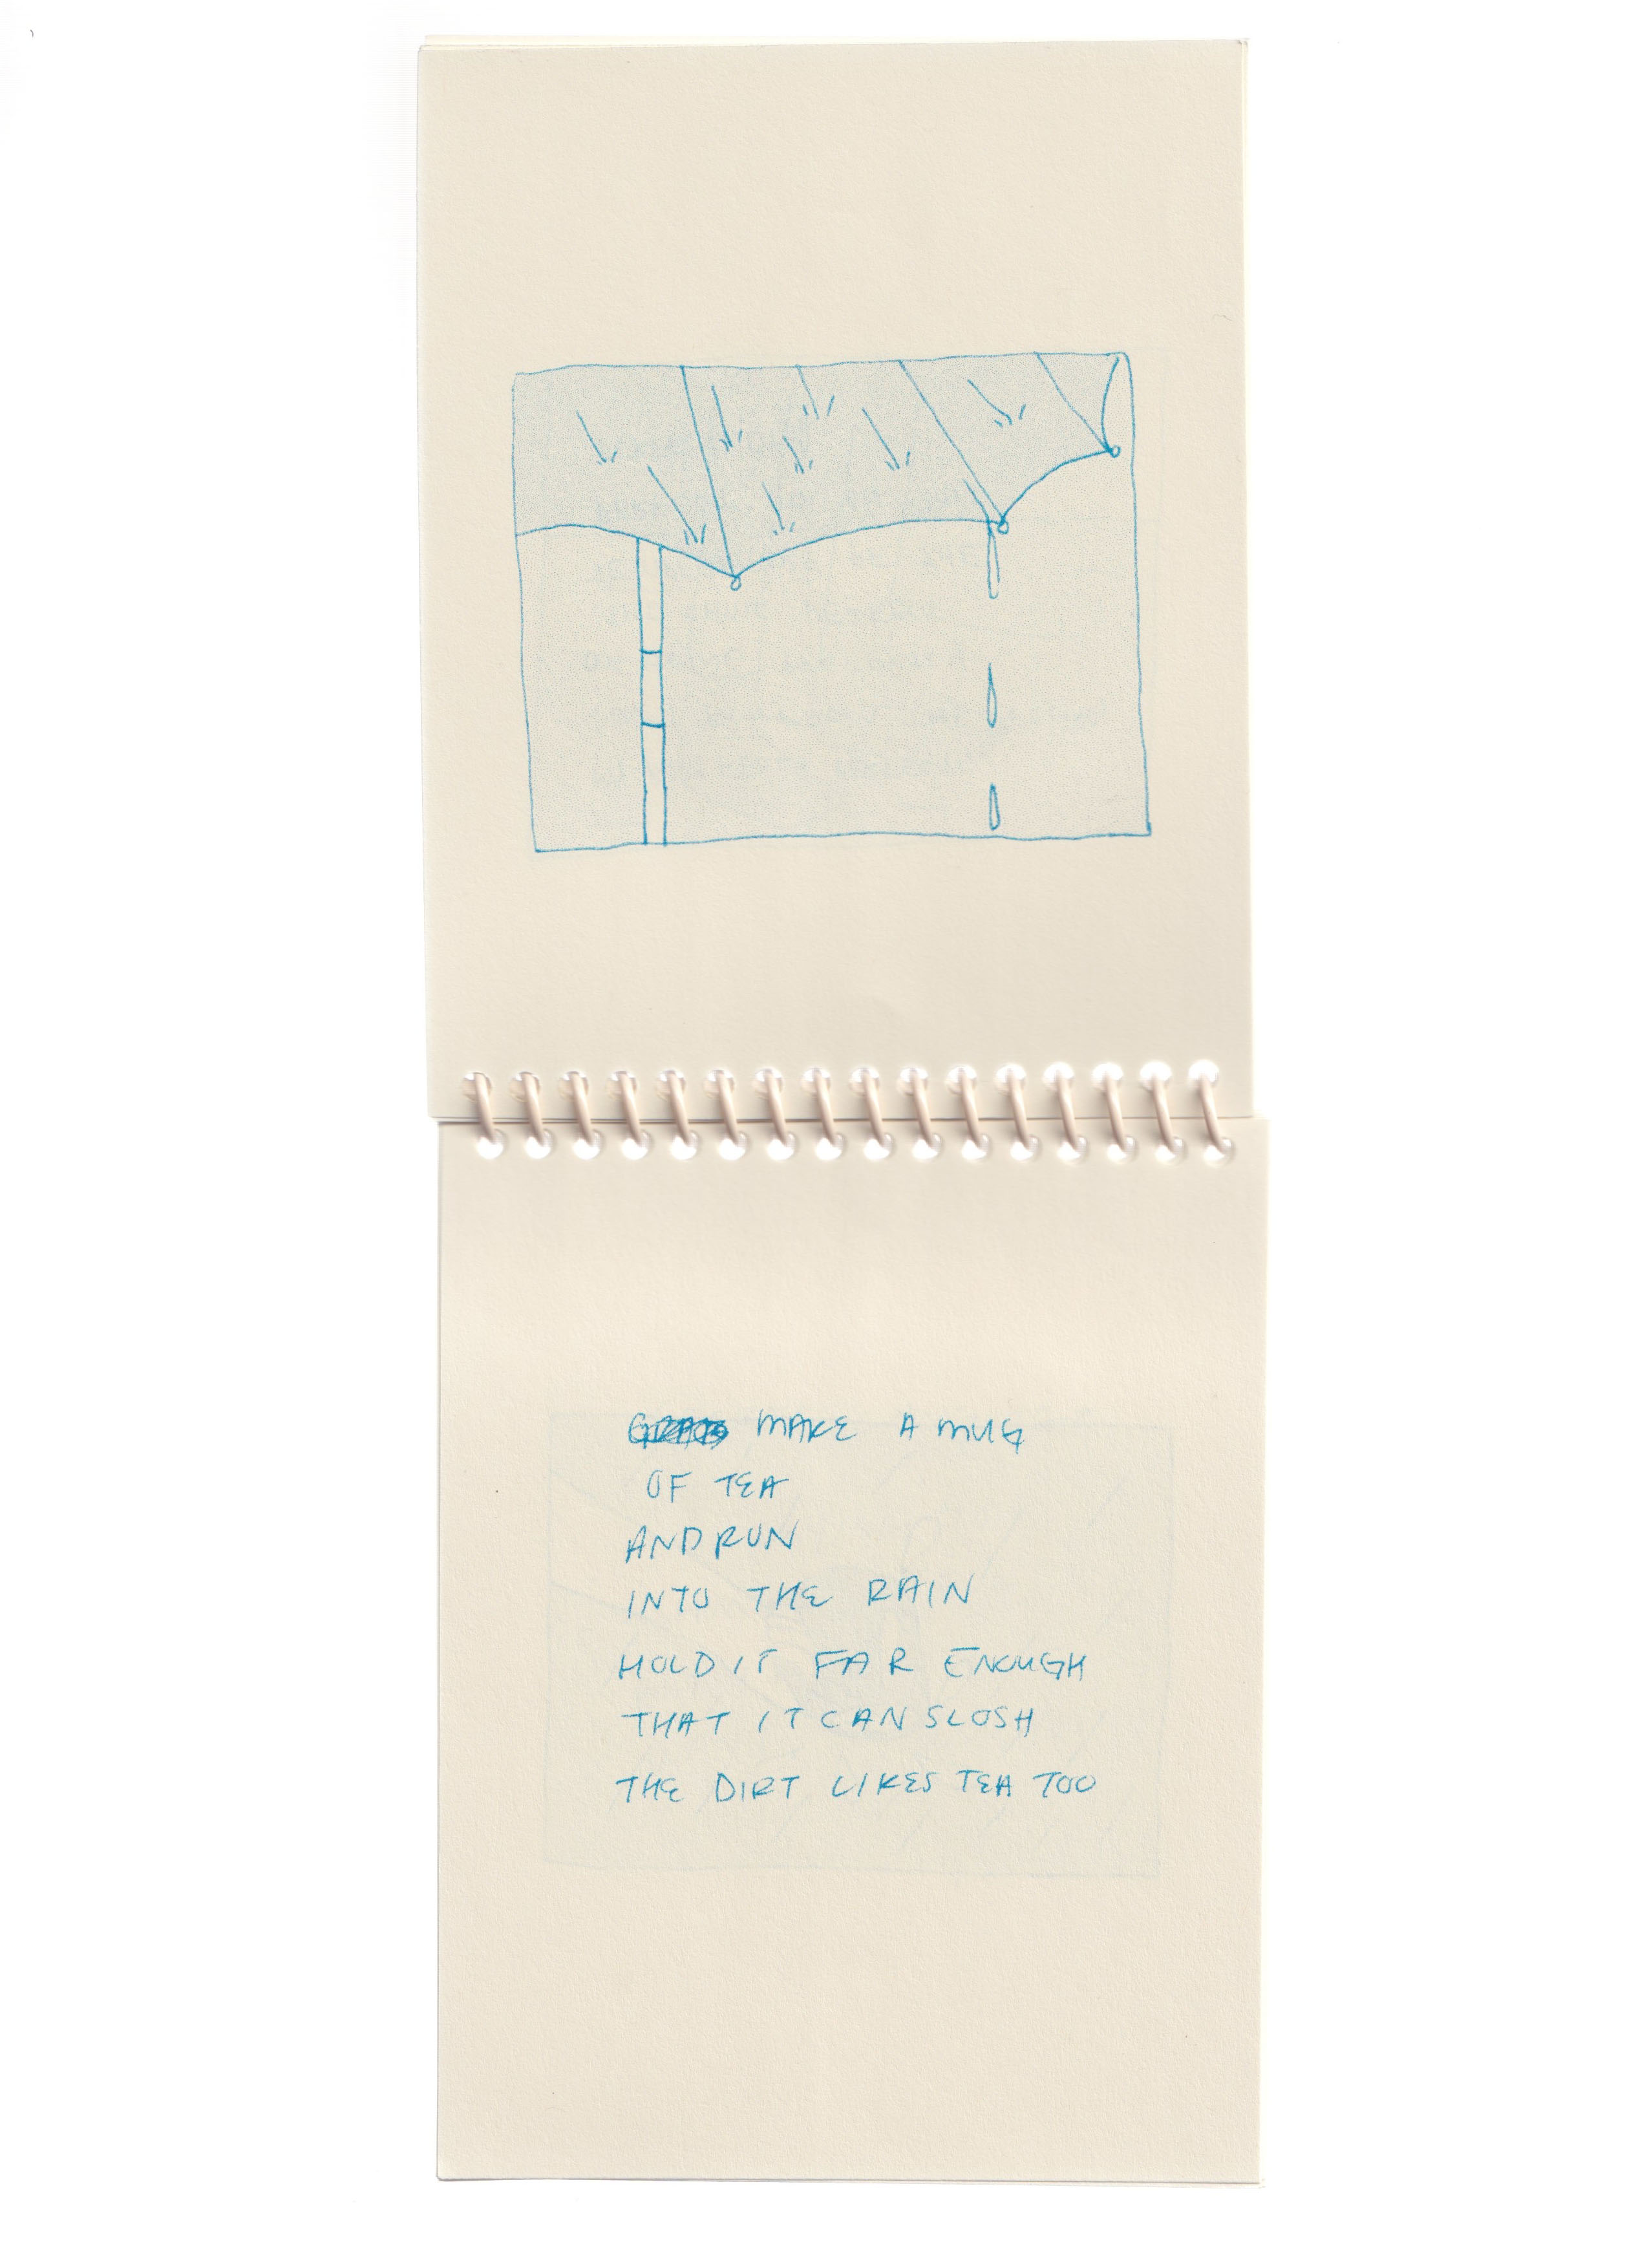 MAKE A MUG
OF TEA
AND RUN
INTO THE RAIN
HOLD IT FAR ENOUGH
THAT IT CAN SLOSH
THE DIRT LIKES TEA TOO